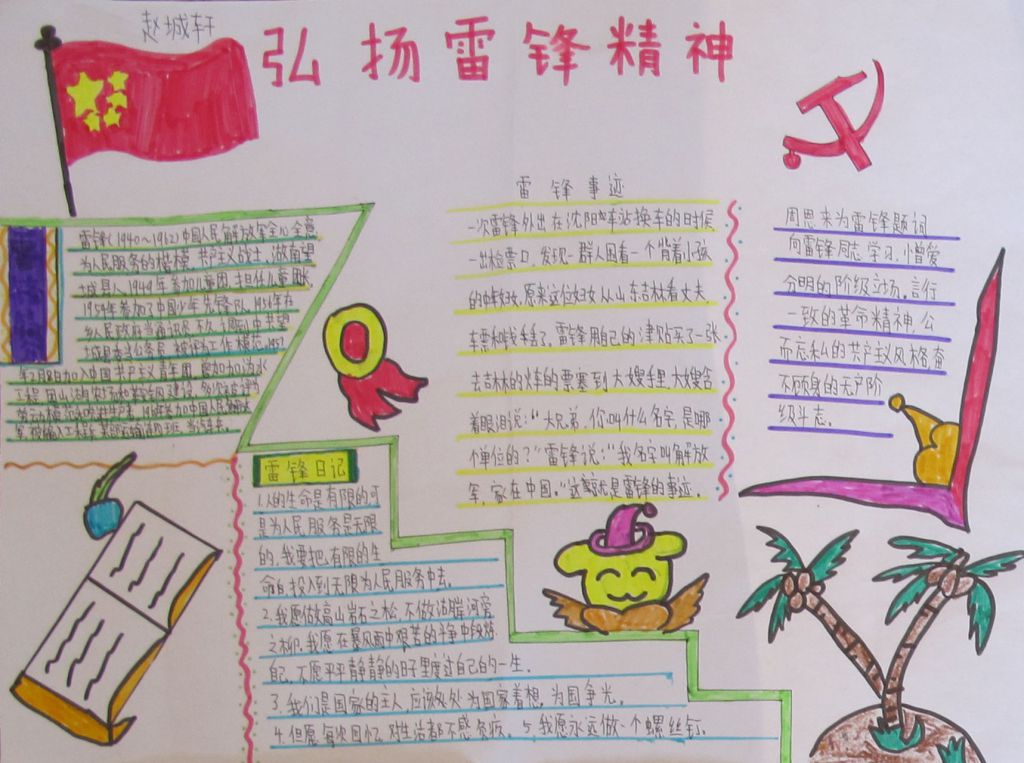 赵城轩
弘扬雷锋精神
雷锋(1940~1962)中国人民解放军全心全意
为人民服务的楷模,共产主义战士,湖南望
城县人,1949年参加儿童团,担任儿童团长,
1954年参加了中国少年先锋队,1956年在
乡人民政府当通讯员,不久调到中共望
城县委当公务员,被评为工作模范,1957
年2月8日加入中国共产主义青年团
雷锋事迹
一次雷锋外出在沈阳火车站换车的时候
一出检票口,发现一群人围看一个背着小孩
的中年妇女,原来这位妇女从山东去吉林看丈夫
车票和钱丢了,雷锋用自己的津贴买了一张
去吉林的火车的票塞到大嫂手里,大嫂含
着眼泪说:“大兄弟,你叫什么名字,是哪
个单位的?”雷锋说:“我名字叫解放
军,家在中国。”这就是雷锋的事迹。
周恩来为雷锋题词
向雷锋同志学习,憎爱
分明的阶级立场。言行
一致的革命精神,公
而忘私的共产主义风格,奋
不顾身的无产阶
级斗志。
雷锋日记
1.人的生命是有限的可
是为人民服务是无限
的,我要把有限的生
命白投入到无限为人民服务中去。
2.我愿做高山岩石之松,不做湖岸河旁
之柳.我愿在暴风雨中艰苦的斗争中锻炼
自己,不愿平平静静的日子里度过自己的一生。
3.我们是国家的主人,应该处处为国家着想,为国争光。
4.但愿每次回忆,对生活都不感负疚。5.我愿永远做一个螺丝钉。